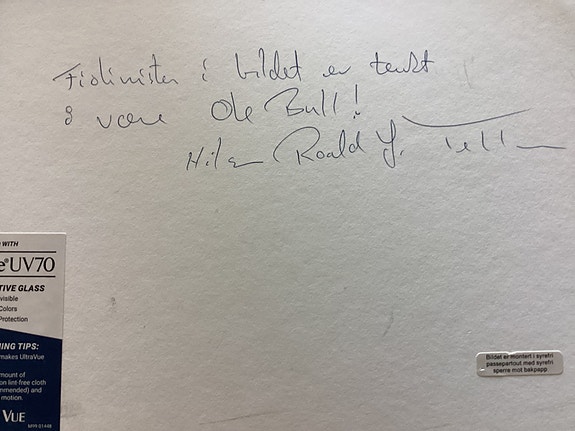 Fiolinisten i bildet er tenkt
å være Ole Bull!
Hilsen Roald G.
WITH
e®UV70
TIVE GLASS
visible
Colors
Protection
NING TIPS:
makes UltraVue
mount of
on lint-free cloth
mmended) and
motion.
VUE
M99 01448
Bildet er montert i syrefri
passepartout med syrefri
sperre mot bakpapp.